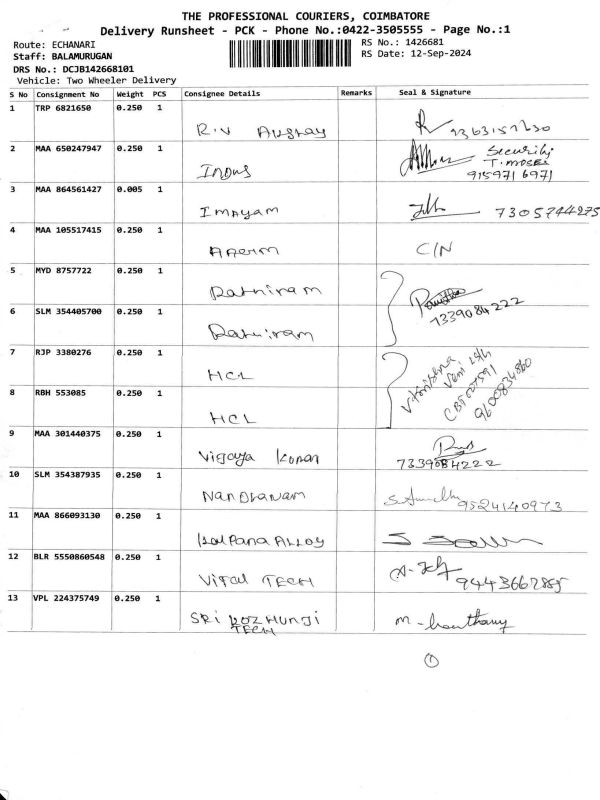 THE PROFESSIONAL COURIERS, COIMBATORE
Delivery Runsheet - PCK - Phone No.:0422-3505555 - Page No.:1
Route: ECHANARI
RS No.: 1426681
Staff: BALAMURUGAN
RS Date: 12-Sep-2024
DRS No.: DCJB142668101
Vehicle: Two Wheeler Delivery
S No Consignment No Weight PCS Consignee Details Remarks Seal & Signature
1 TRP 6821650 0.250 1
R.V
2 MAA 650247947 0.250 1 Security
Indus T. Moses
9159716971
3 MAA 864561427 0.005 1
Imayam 7305744275
4 MAA 105517415 0.250 1
C/N
5 MYD 8757722 0.250 1
Ratniram
7339084222
6 SLM 354405700 0.250 1
Ratniram
7 RJP 3380276 0.250 1
HCL
8 RBH 553085 0.250 1
HCL
9600834860
9 MAA 301440375 0.250 1
Vijaya
7339084222
10 SLM 354387935 0.250 1
Nandhanam 9524140973
11 MAA 866093130 0.250 1
Kalpana Alloy
12 BLR 5550860548 0.250 1
Vital TECH 9443667885
13 VPL 224375749 0.250 1
SRi KOZHUNJi
TECH
1